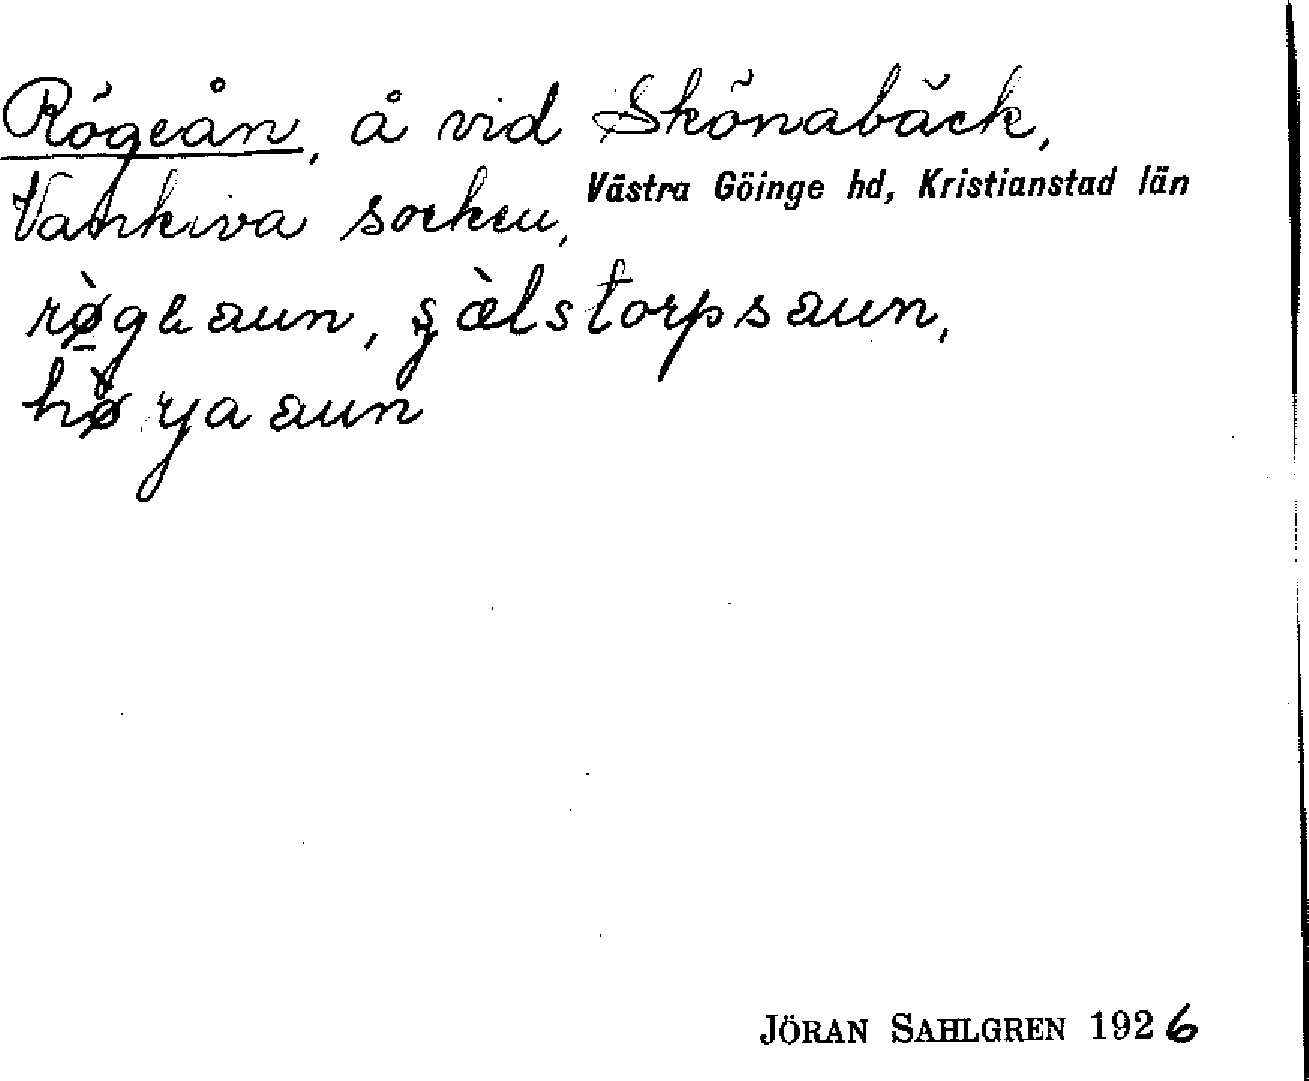 Rögeån, å vid Skönabäck,
Vankiva socken, Västra Göinge hd, Kristianstad län
rø̀gəaun, jæ̀lstorpsaun,
hø̀rjaaun
JÖRAN SAHLGREN 1926